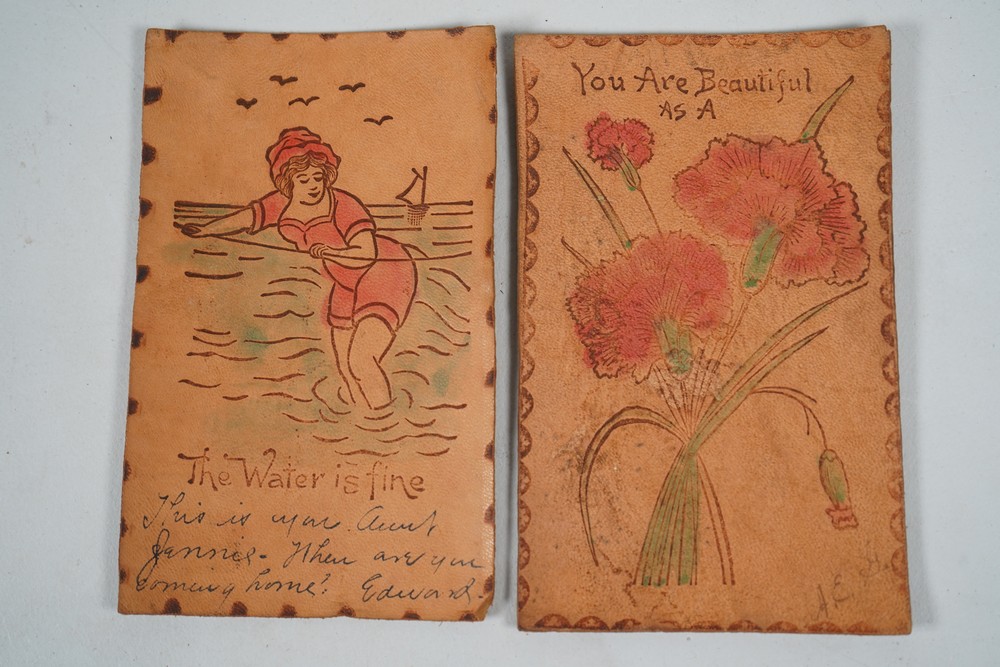 The Water is fine
This is you. Aunt
Jennie. When are you
coming home? Edward.
You Are Beautiful
AS A
A.E. G.